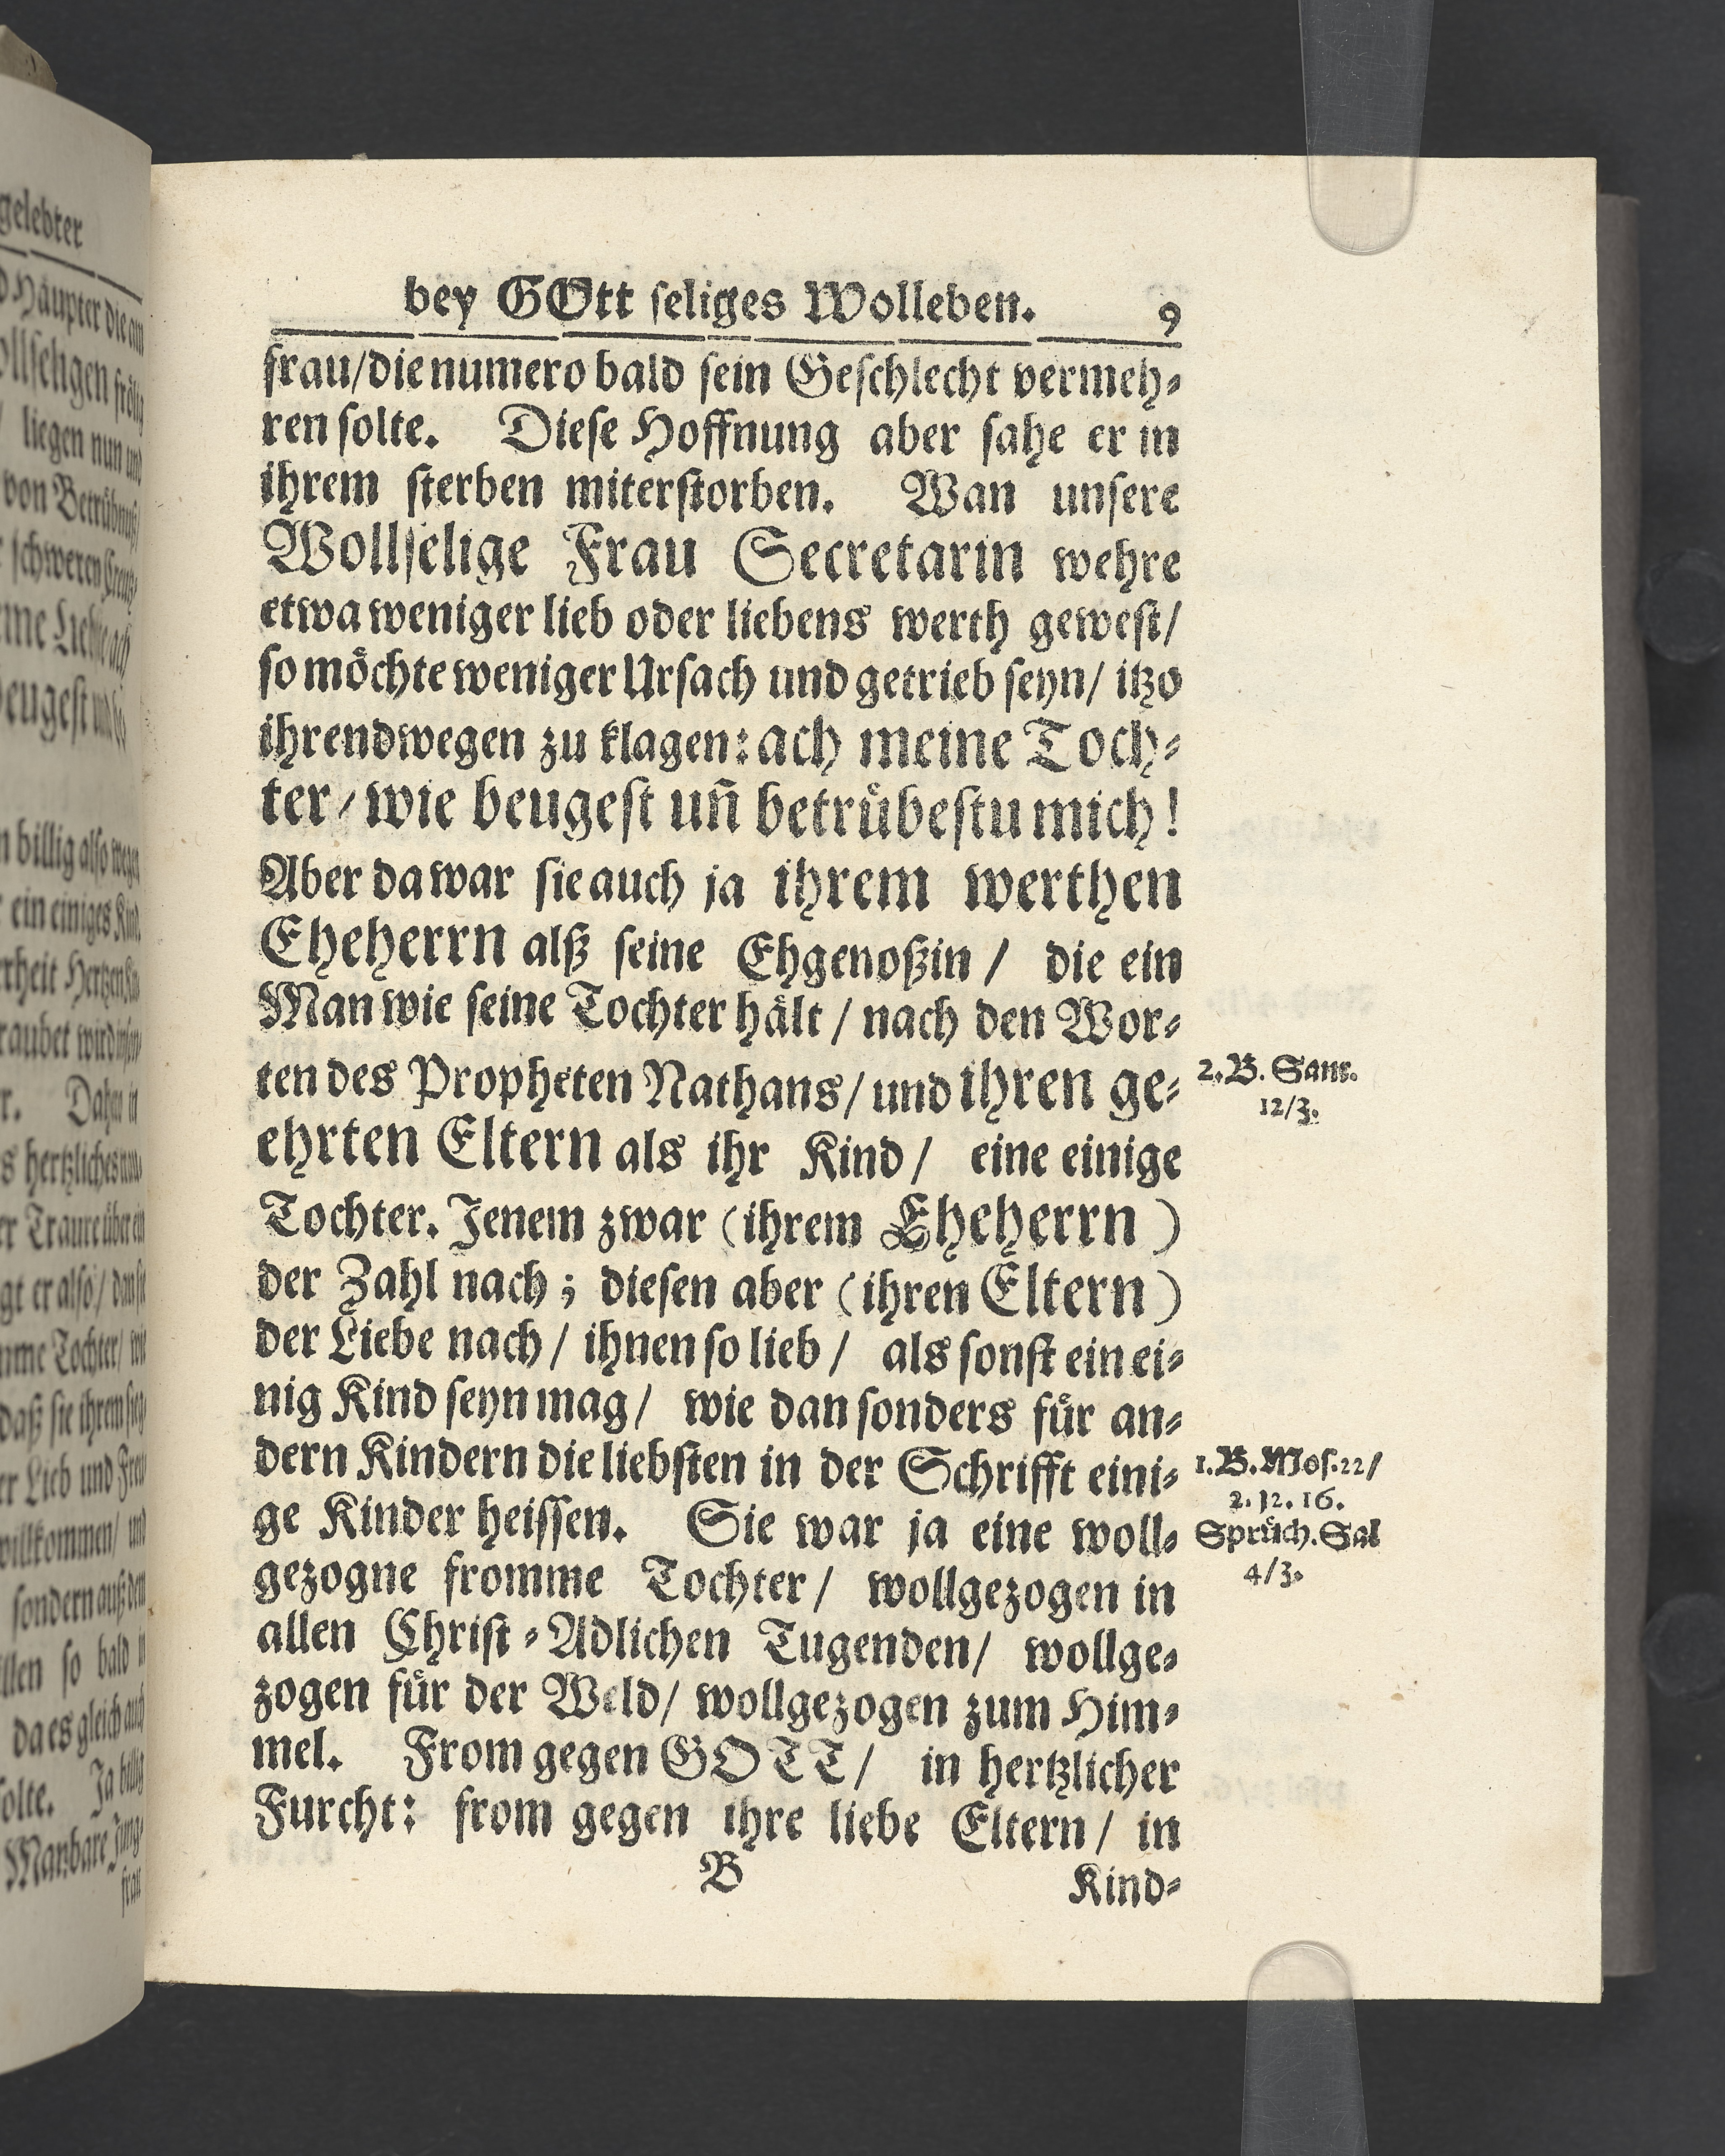 bey GOtt ſeliges Wolleben. 9
frau/die numero bald ſein Geſchlecht vermeh⸗
ren ſolte. Dieſe Hoffnung aber ſahe er in
ihrem ſterben miterſtorben. Wan unſere
Wollſelige Frau Secretarin wehre
etwa weniger lieb oder liebens werth geweſt/
ſo möchte weniger Urſach und getrieb ſeyn/ itzo
ihrendwegen zu klagen: ach meine Toch⸗
ter/wie beugeſt uñ betrübeſtu mich!
Aber da war ſie auch ja ihrem werthen
Eheherrn alß ſeine Ehgenoßin / die ein
Man wie ſeine Tochter hält / nach den Wor⸗
ten des Propheten Nathans/ und ihren ge⸗
2. B. Sam.
12/3.
ehrten Eltern als ihr Kind / eine einige
Tochter. Jenem zwar (ihrem Eheherrn)
der Zahl nach; dieſen aber (ihren Eltern)
der Liebe nach / ihnen ſo lieb / als ſonſt ein ei⸗
nig Kind ſeyn mag / wie dan ſonders für an⸗
dern Kindern die liebſten in der Schrifft eini⸗
1. B. Moſ. 22/
2. 12. 16.
Sprüch. Sal
4/3.
ge Kinder heiſſen. Sie war ja eine woll⸗
gezogne fromme Tochter / wollgezogen in
allen Chriſt⸗Adlichen Tugenden/ wollge⸗
zogen für der Weld/ wollgezogen zum Him⸗
mel. From gegen GOTT / in hertzlicher
Furcht: from gegen ihre liebe Eltern / in
B Kind⸗